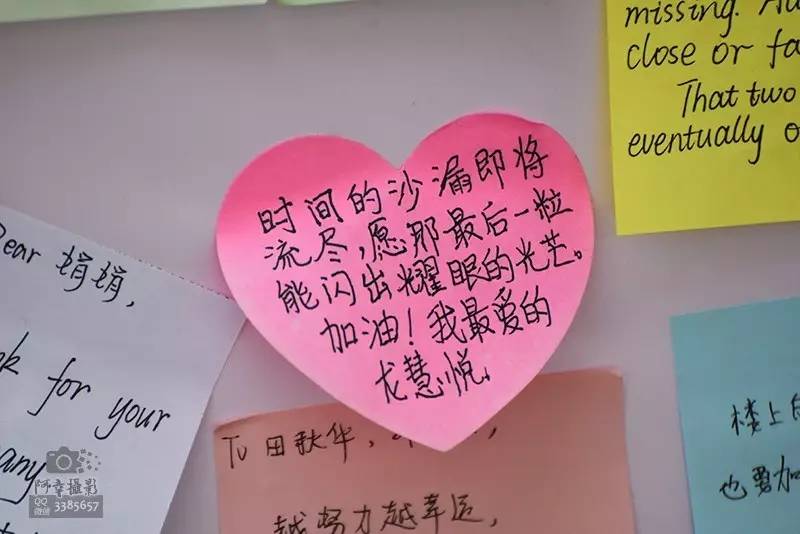 missing.
close or fa
That two
eventually o
时间的沙漏即将
流尽,愿那最后一粒
能闪出耀眼的光芒。
加油!我最爱的
尤慧悦。
Dear 娟娟,
ok for your
any
To 田秋华,
越努力越幸运,
楼上的
也要加
阿幸攝影
QQ
微信 3385657